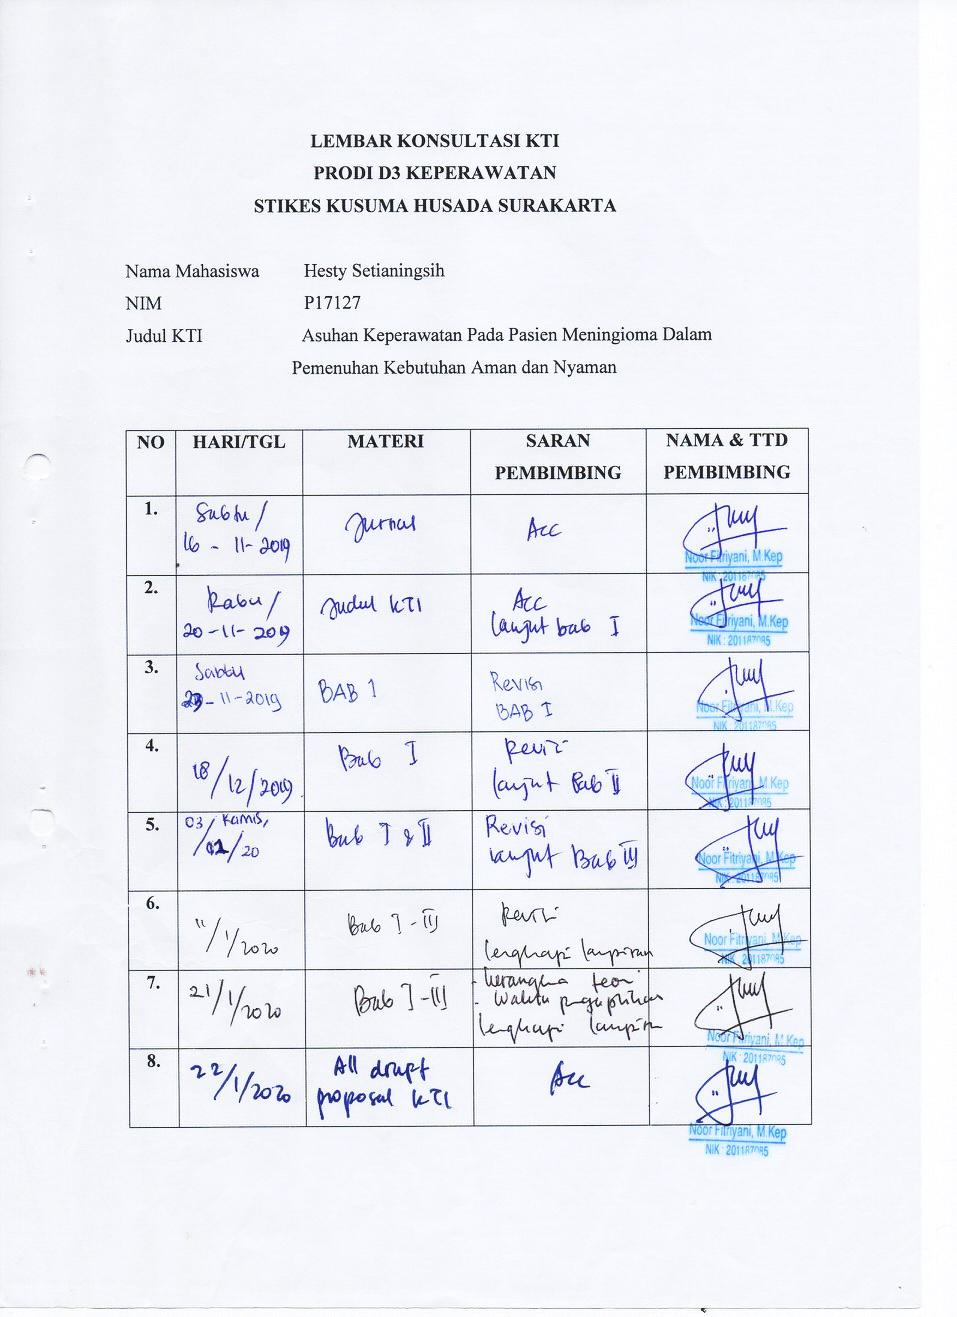 LEMBAR KONSULTASI KTI
PRODI D3 KEPERAWATAN
STIKES KUSUMA HUSADA SURAKARTA
Nama Mahasiswa Hesty Setianingsih
NIM P17127
Judul KTI Asuhan Keperawatan Pada Pasien Meningioma Dalam
Pemenuhan Kebutuhan Aman dan Nyaman
NO HARI/TGL MATERI SARAN PEMBIMBING NAMA & TTD PEMBIMBING
1. Sabtu /
16 - 11 - 2019 Jurnal Acc
Noor Fitriyani, M.Kep
NIK : 201187085
2. Rabu /
20 - 11 - 2019 Judul KTI Acc
lanjut bab I
Noor Fitriyani, M.Kep
NIK : 201187085
3. Sabtu
23 - 11 - 2019 BAB 1 Revisi
BAB I
Noor Fitriyani, M.Kep
NIK : 201187085
4. 18/12/2019 Bab I Revisi
lanjut Bab II
Noor Fitriyani, M.Kep
NIK : 201187085
5. 03/ Kamis,
/20 Bab I & II Revisi
lanjut Bab III
Noor Fitriyani, M.Kep
NIK : 201187085
6. 11/1/2020 Bab I - III Revisi
lengkapi lampiran
Noor Fitriyani, M.Kep
NIK : 201187085
7. 21/1/2020 Bab I - III - kerangka teori
- Waktu
lengkapi lampiran
Noor Fitriyani, M.Kep
NIK : 201187085
8. 22/1/2020 All draft
proposal KTI Acc
Noor Fitriyani, M.Kep
NIK : 201187085